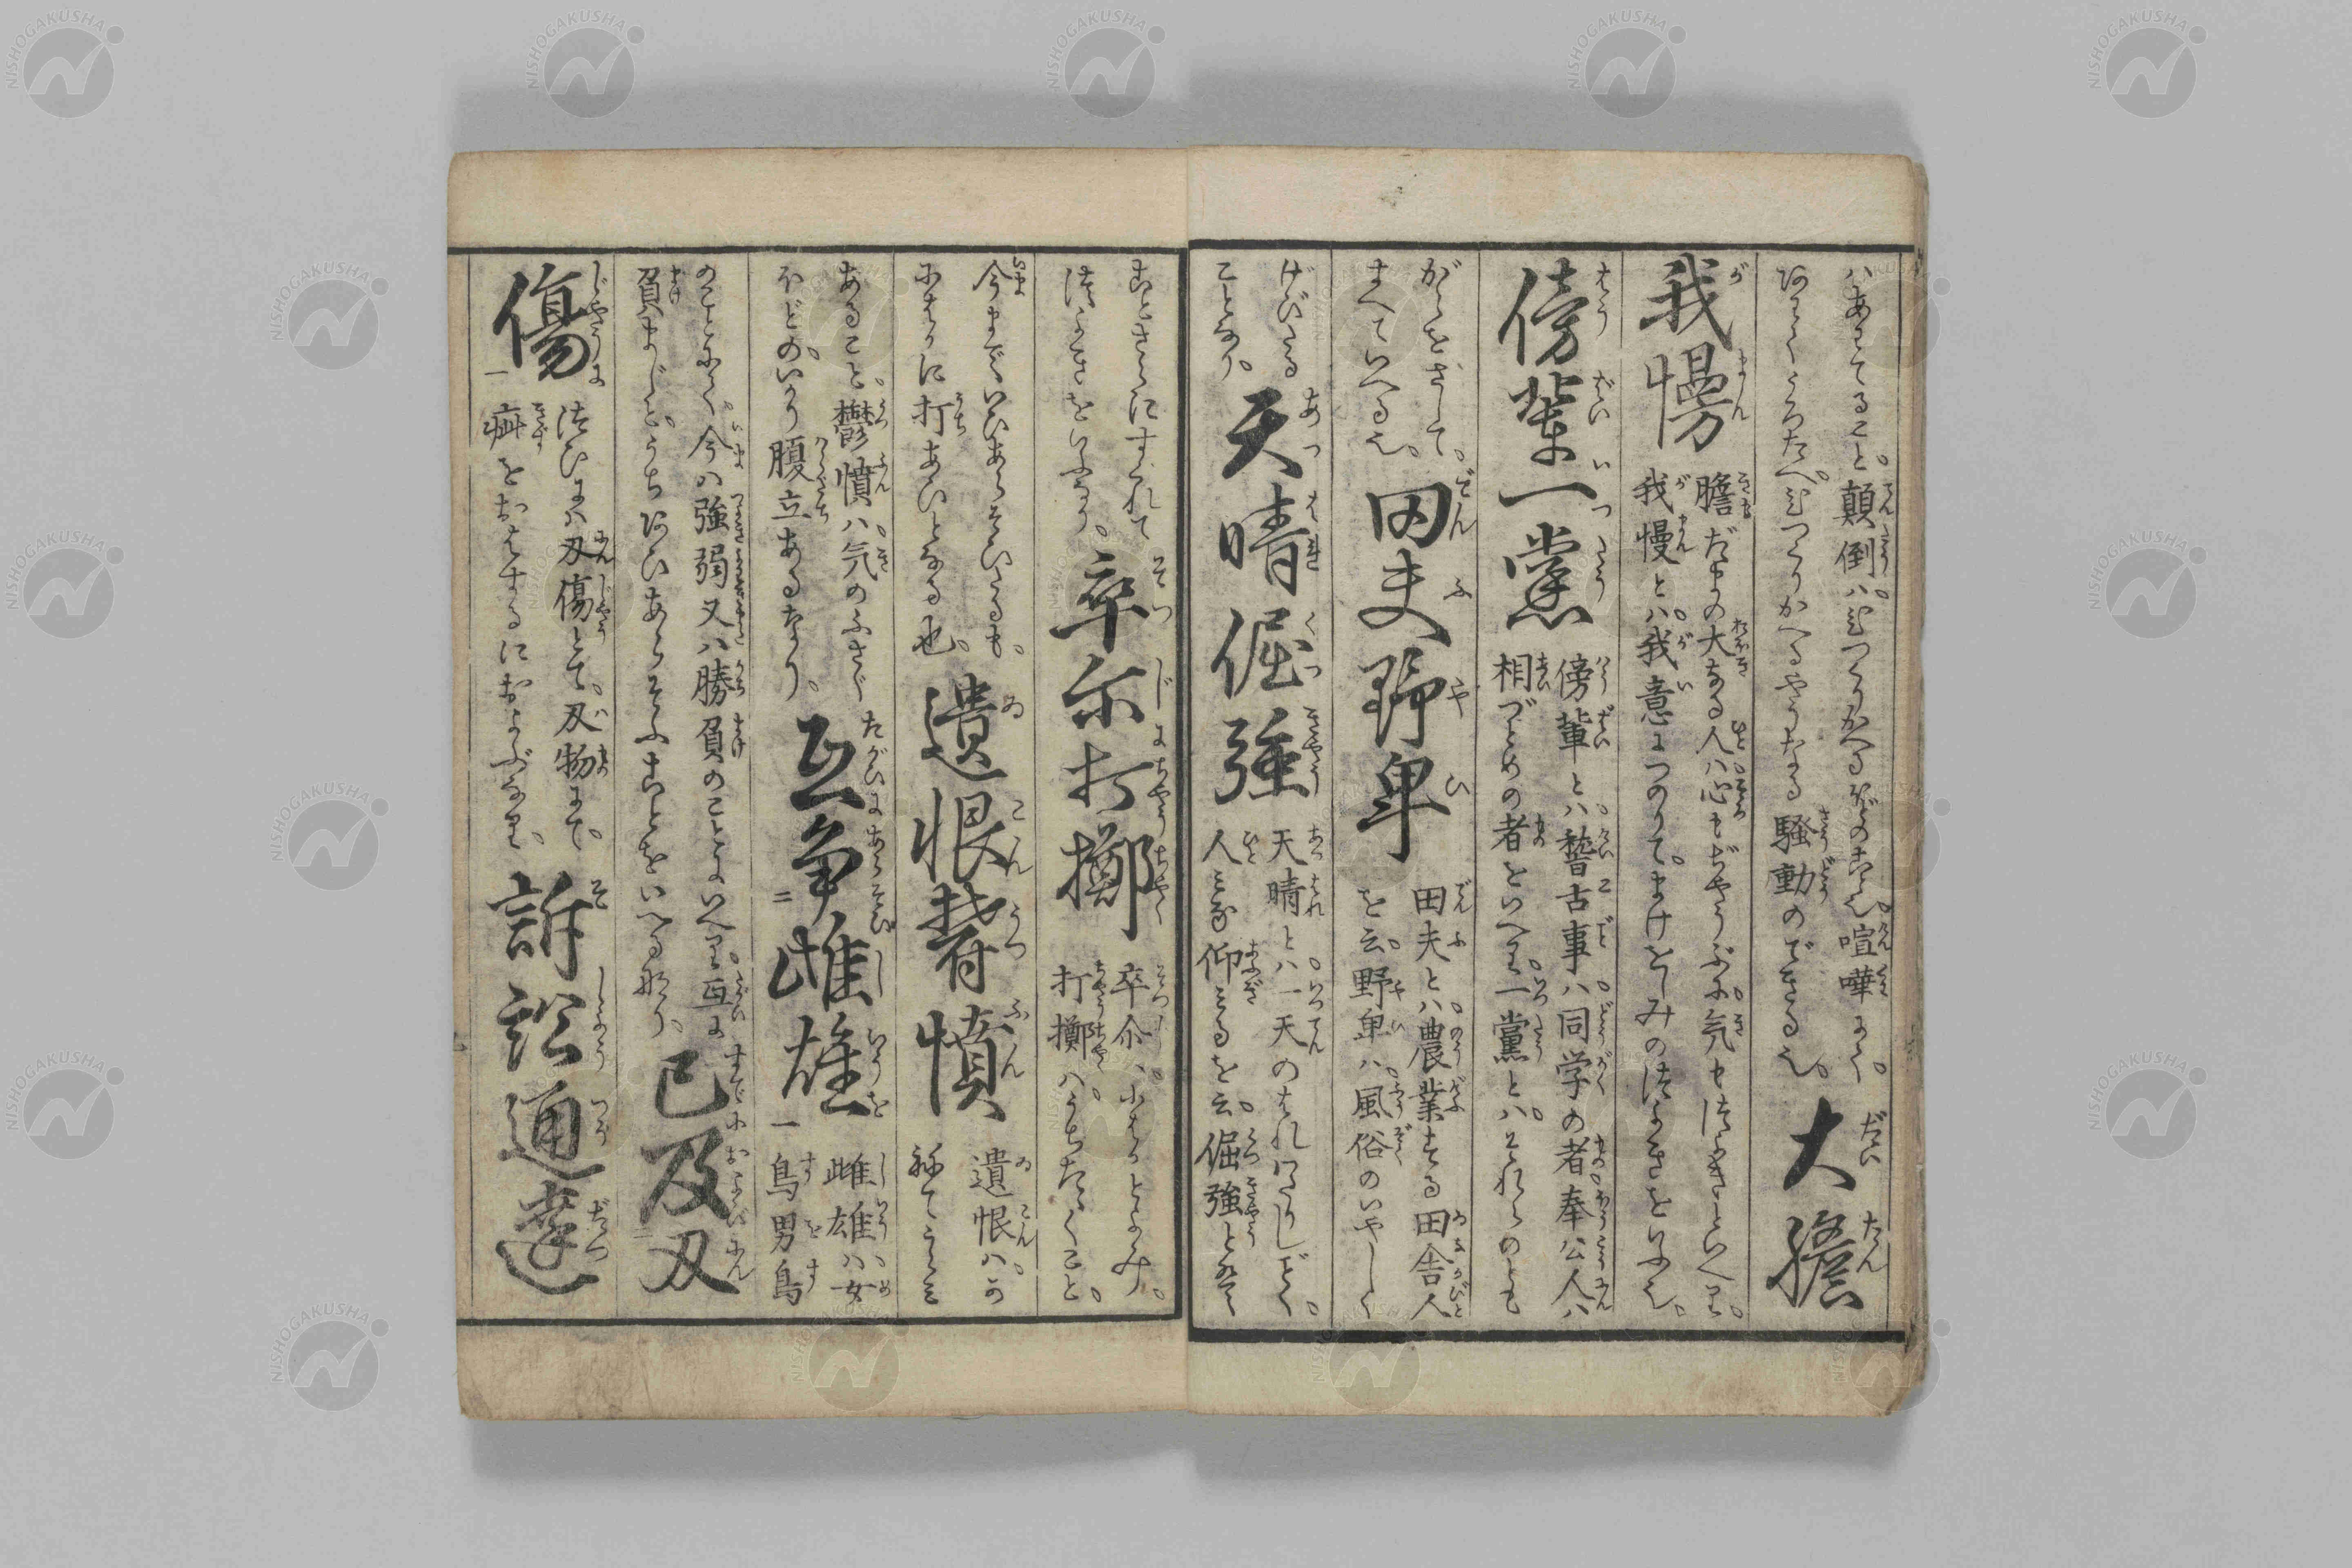 ハあわてること。顛倒ハ。ひつくりかへるほどのこと也。喧嘩にて。
あわてうろたへ。ひつくりかへるやうなる騒動のできる也。
大膽
我慢
膽だまの大きなる人ハ。心もぢやうぶに。気もつよきといへり。
我慢とハ。我意につのりて。まけをしみのつよきをいふ也。
傍輩一黨
傍輩とハ。稽古事ハ。同学の者。奉公人ハ
相づとめの者をいへり。一黨とハ。それらのとも
がらをさして。
まへていへる也。
田夫野卑
田夫とハ。農業する田舎人
を云。野卑ハ。風俗のいやしく
げびたる
ことなり。
天晴倔強
天晴とハ。一天のはれわたりしごとく。
人みな仰みるを云。倔強と
ことさらにすぐれて
つよきをいふなり。
卒尓打擲
卒尓ハ。にはかとよみ。
打擲ハ。うちたたくこと。
今までいひあらそひたるも。
にはかに打あひとなる也。
遺恨欝憤
遺恨ハ。か
ねてうらみ
あること。鬱憤ハ。気のふさぐ
ほどのいかり腹立あるなり。
互争雌雄
雌雄ハ。女
鳥男鳥
のことにて。今ハ強弱又ハ勝負のことにいへり。互に
負まじと。うちあひあらそふことをいへるなり。
已及刃
傷
つひにハ刃傷とて。刃物にて。
疵をおはするにおよぶなり。
訴訟通達